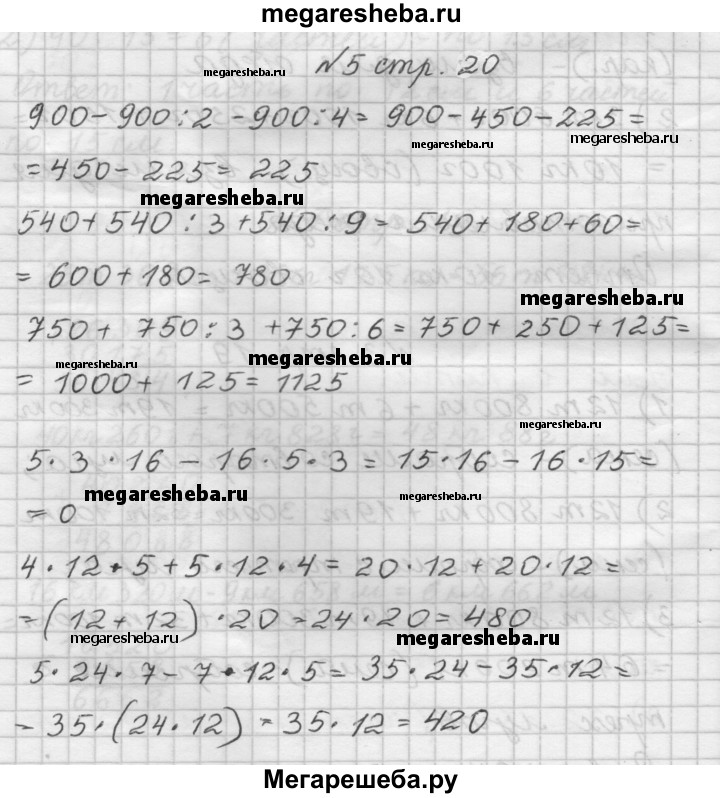 megaresheba.ru
megaresheba.ru
№5 стр. 20
900-900:2-900:4= 900-450-225=
megaresheba.ru
megaresheba.ru
=450-225=225
megaresheba.ru
540+540:3+540:9= 540+180+60=
=600+180=780
megaresheba.ru
750+ 750:3 +750:6=750+250+125=
megaresheba.ru
megaresheba.ru
= 1000+ 125= 1125
megaresheba.ru
5·3·16-16·5·3=15·16-16·15=
megaresheba.ru
megaresheba.ru
=0
4·12·5+5·12·4=20·12+20·12=
=(12+12)·20=24·20=480
megaresheba.ru
megaresheba.ru
5·24·7-7·12·5=35·24-35·12=
-35·(24·12)=35·12=420
Мегарешеба.ру